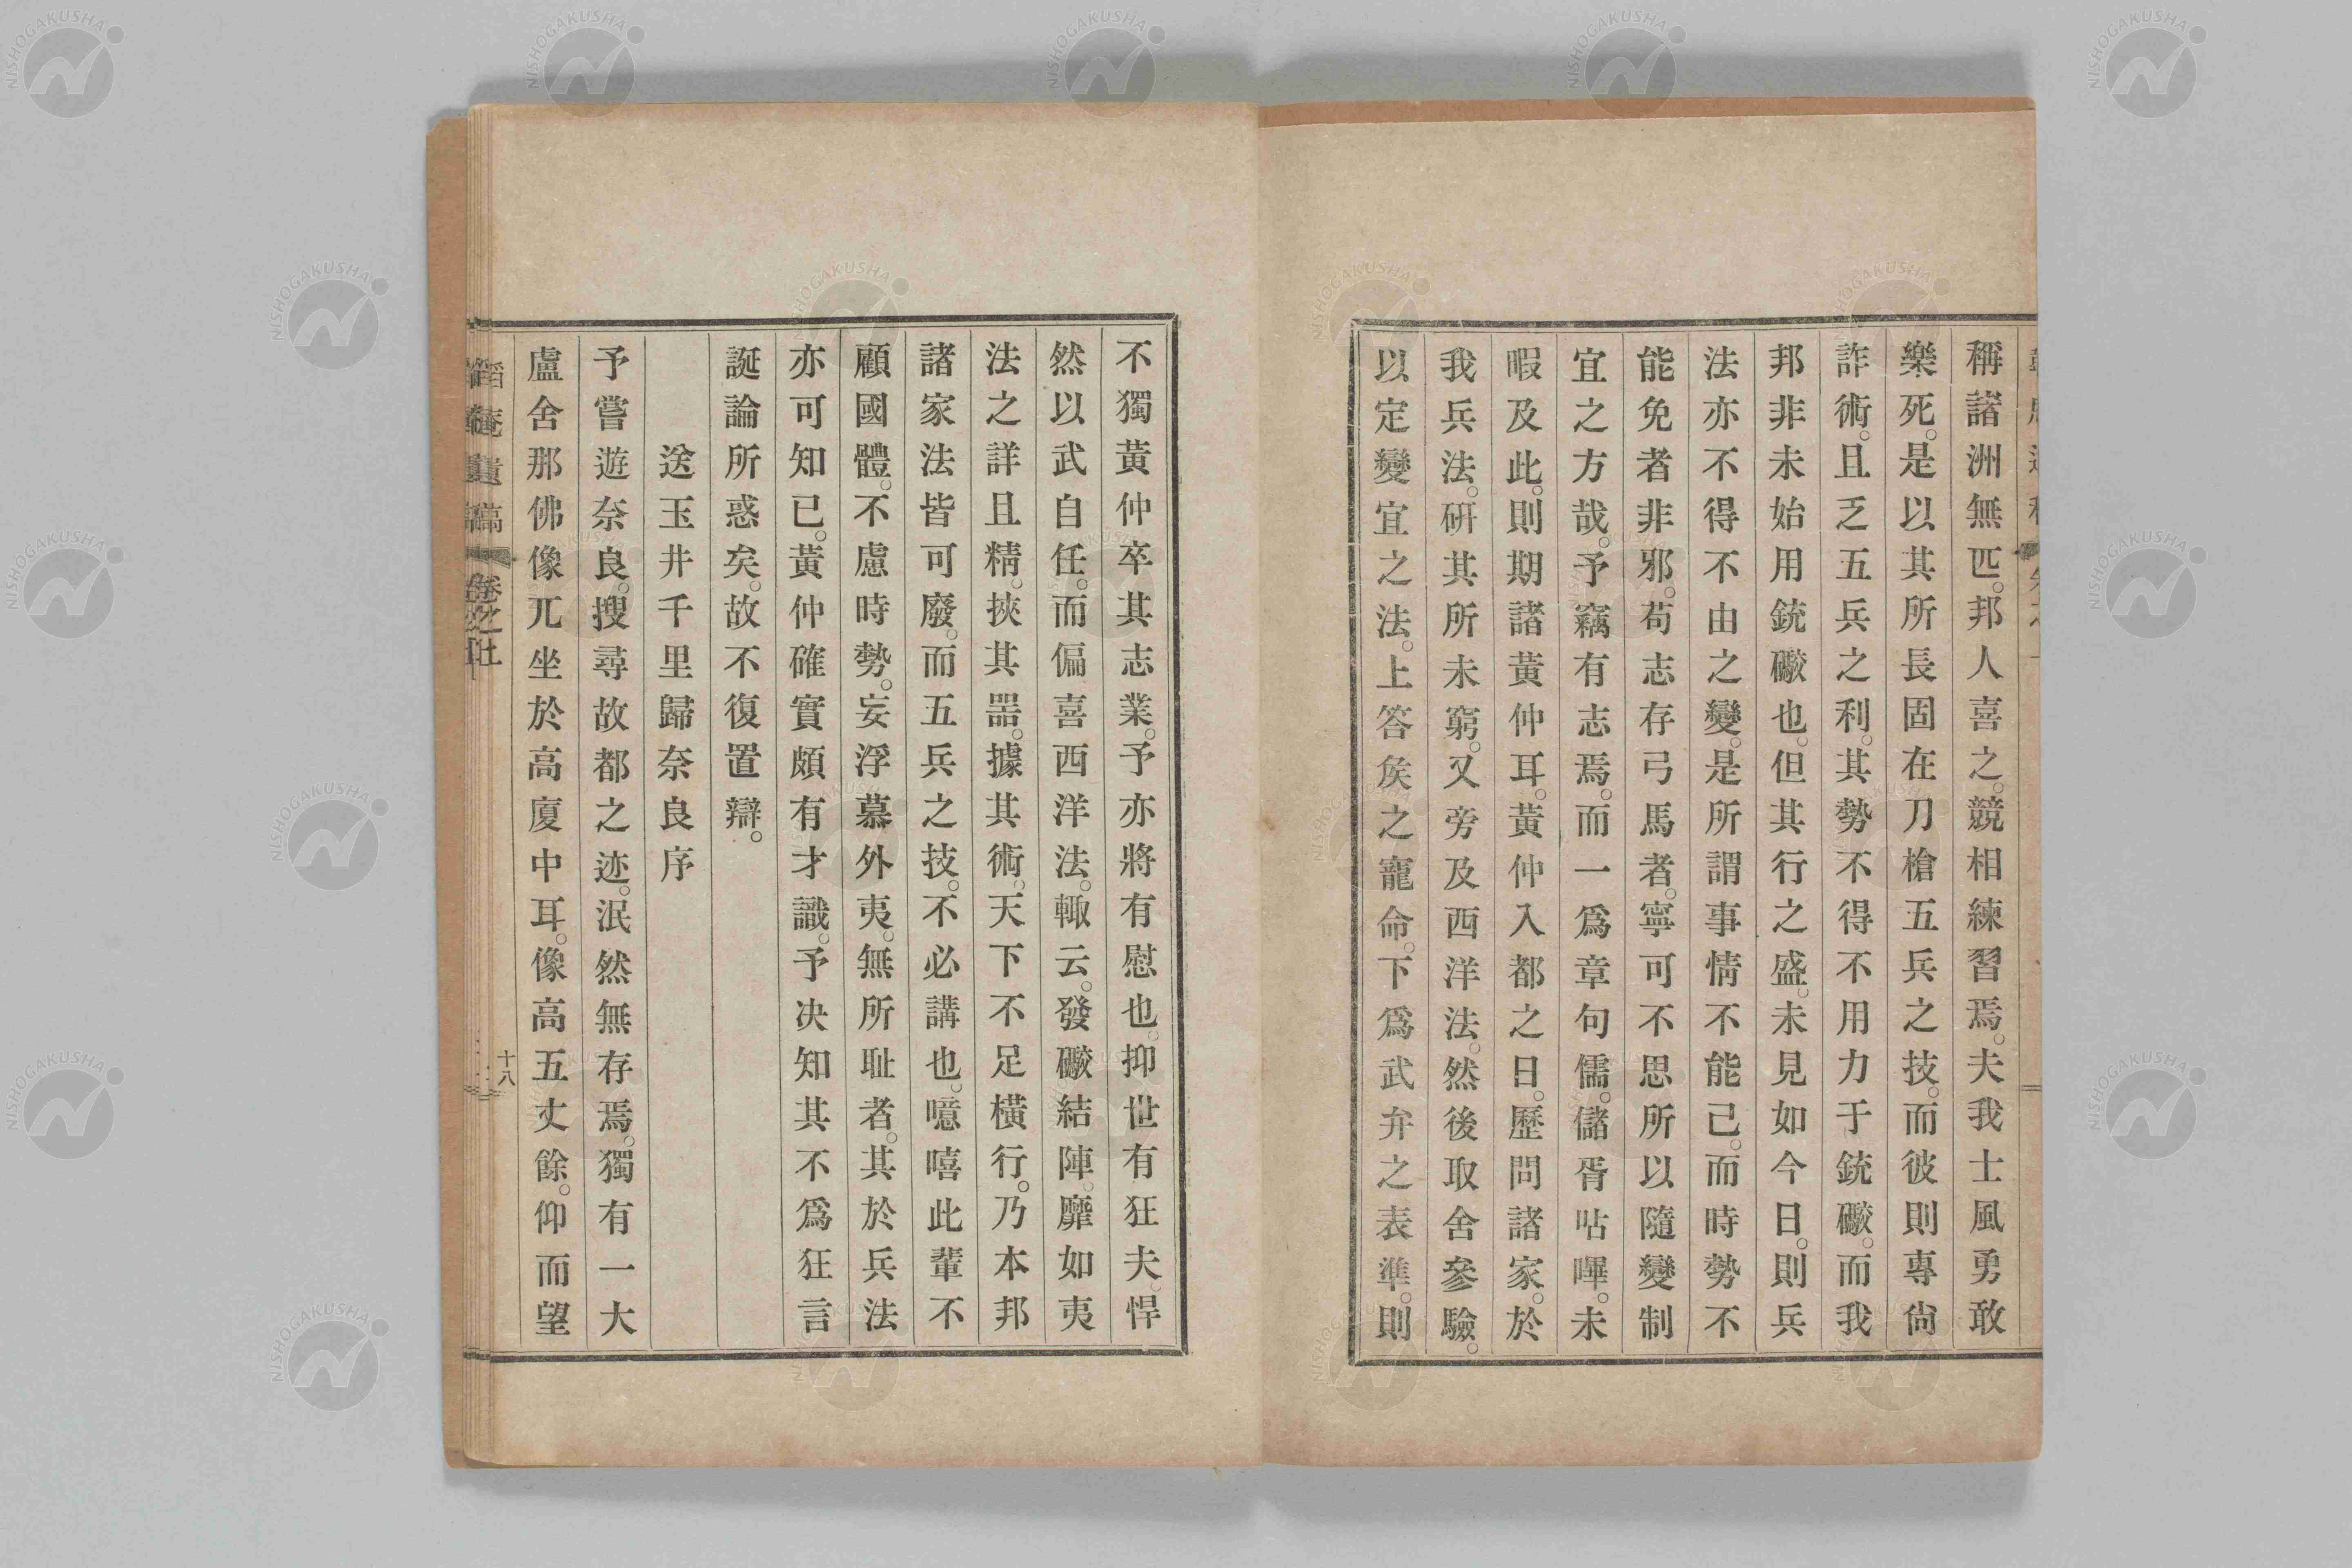 稱諸洲無匹。邦人喜之。競相練習焉。夫我士風勇敢
樂死。是以其所長固在刀槍五兵之技。而彼則專尙
詐術。且乏五兵之利。其勢不得不用力于銃礮。而我
邦非未始用銃礮也。但其行之盛。未見如今日。則兵
法亦不得不由之變。是所謂事情不能已。而時勢不
能免者非邪。苟志存弓馬者。寧可不思所以隨變制
宜之方哉。予竊有志焉。而一爲章句儒。儲胥呫嗶。未
暇及此。則期諸黃仲耳。黃仲入都之日。歷問諸家。於
我兵法。硏其所未窮。又旁及西洋法。然後取舍參驗。
以定變宜之法。上答矦之寵命。下爲武弁之表準。則
不獨黃仲卒其志業。予亦將有慰也。抑世有狂夫。悍
然以武自任。而偏喜西洋法。輙云。發礮結陣。靡如夷
法之詳且精。挾其器。據其術。天下不足橫行。乃本邦
諸家法皆可廢。而五兵之技。不必講也。噫嘻此輩不
顧國體。不慮時勢。妄浮慕外夷。無所耻者。其於兵法
亦可知已。黃仲確實頗有才識。予決知其不爲狂言
誕論所惑矣。故不復置辯。
送玉井千里歸奈良序
予嘗遊奈良。搜尋故都之迹。泯然無存焉。獨有一大
盧舍那佛像兀坐於高廈中耳。像高五丈餘。仰而望
菴遺稿 卷之上
十八
NISHOGAKUSHA